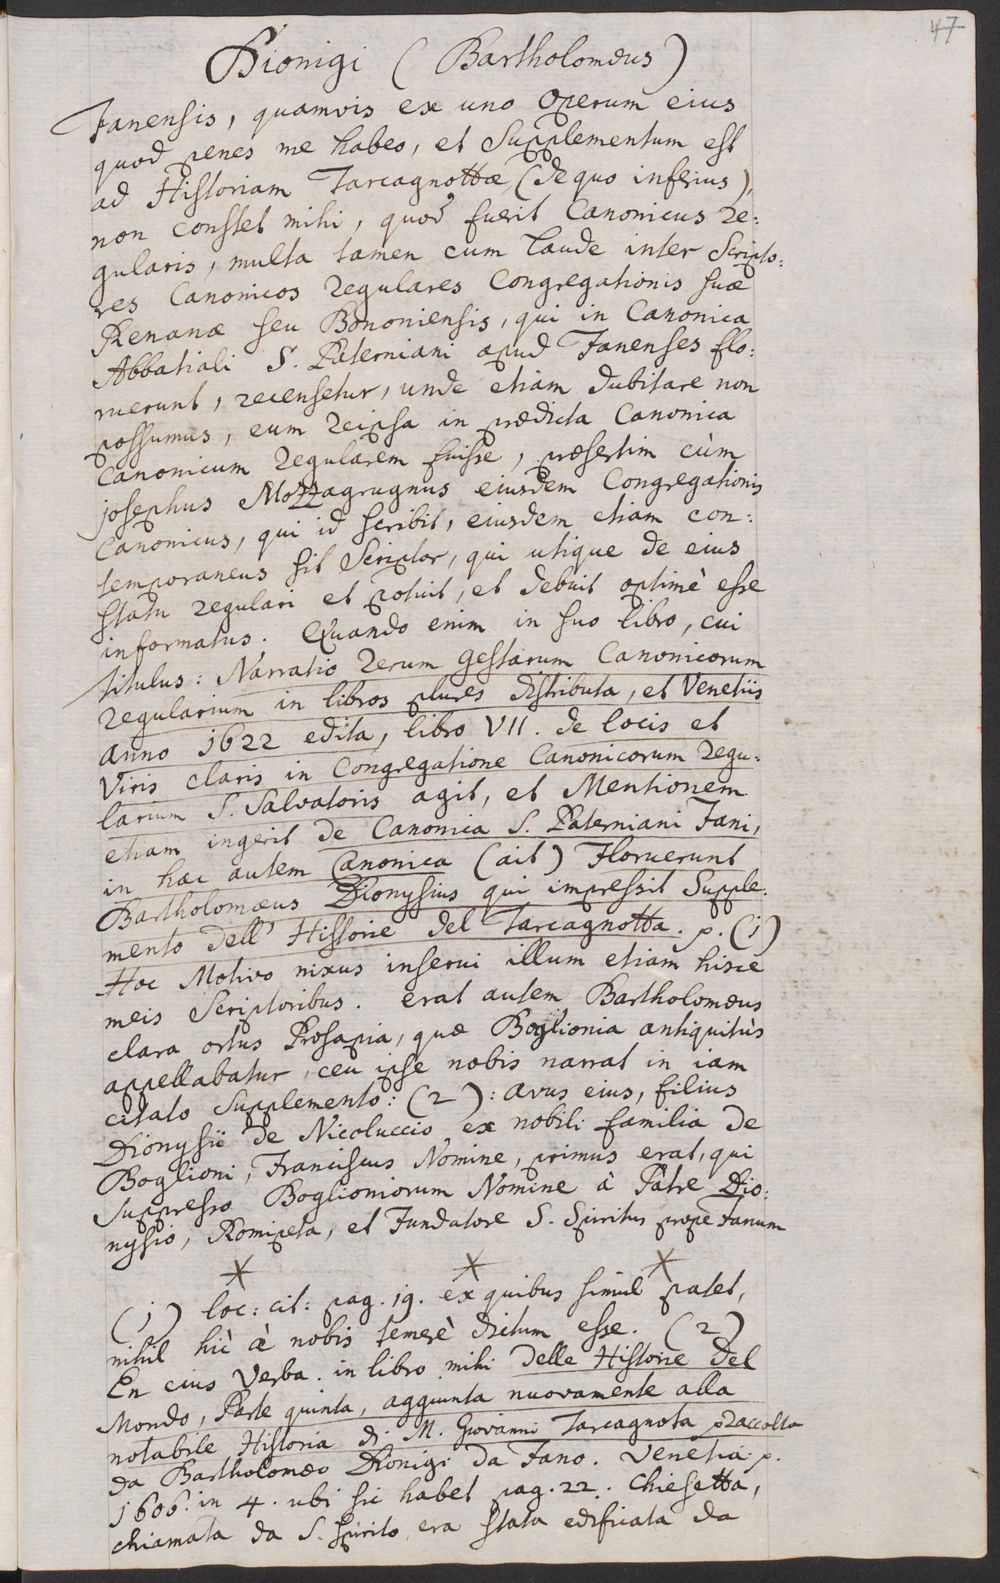 47
Dionigi (Bartholomæus)
Fanensis, quamvis ex uno Operum eius
quod penes me habeo, et Supplementum est
ad Historiam Tarcagnottæ, (de quo inferius),
non constet mihi, quod fuerit Canonicus Re:
gularis, multa tamen cum laude inter Scripto:
res Canonicos Regulares Congregationis suæ
Renanæ seu Bononiensis, qui in Canonica
Abbatiali S. Paterniani apud Fanenses flo:
ruerunt, recensetur, unde etiam dubitare non
possumus, eum reipsa in prædicta Canonica
Canonicum Regularem fuisse, præsertim cùm
josephus Mozzagrugnus eiusdem Congregationis
Canonicus, qui id scribit, eiusdem etiam con:
temporaneus sit Scriptor, qui utique de eius
statu regulari et potuit, et debuit optimè esse
informatus. Quando enim in suo libro, cui
titulus: Narratio Rerum gestarum Canonicorum
Regularium in libros plures distributa, et Venetiis
anno 1622 edita, libro VII. de locis et
Viris claris in Congregatione Canonicorum Regu:
larium S. Salvatoris agit, et Mentionem
etiam ingerit de Canonica S. Paterniani Fani,
in hac autem Canonica (ait) Floruerunt
Bartholomæus Dionysius qui impressit Supple:
mento dell' Historie del Tarcagnotta. p. (1)
Hoc Motivo nixus inserui illum etiam hisce
meis Scriptoribus. erat autem Bartholomæus
clara ortus Prosapia, quæ Boglionia antiquitùs
appellabatur, ceu ipse nobis narrat in iam
citato Supplemento: (2): avus eius, filius
Dionysii de Nicoluccio ex nobili familia de
Boglioni, Franciscus Nomine, primus erat, qui
suppresso Boglioniorum Nomine à Patre Dio:
nysio, Romipeta, et Fundatore S. Spiritus prope Fanum
(1) loc: cit: pag. 19. ex quibus simul patet,
nihil hìc à nobis temerè dictum esse. (2)
En eius Verba. in libro mihi Delle Historie del
Mondo, Parte quinta, aggiunta nuovamente alla
notabile Historia di M. Giovanni Tarcagnota p raccolta
da Bartholomæo Dionigi da Fano. Venetia. p.
1606. in 4. ubi sic habet pag. 22. Chiesetta,
chiamata da S. Spirito, era stata edificata da